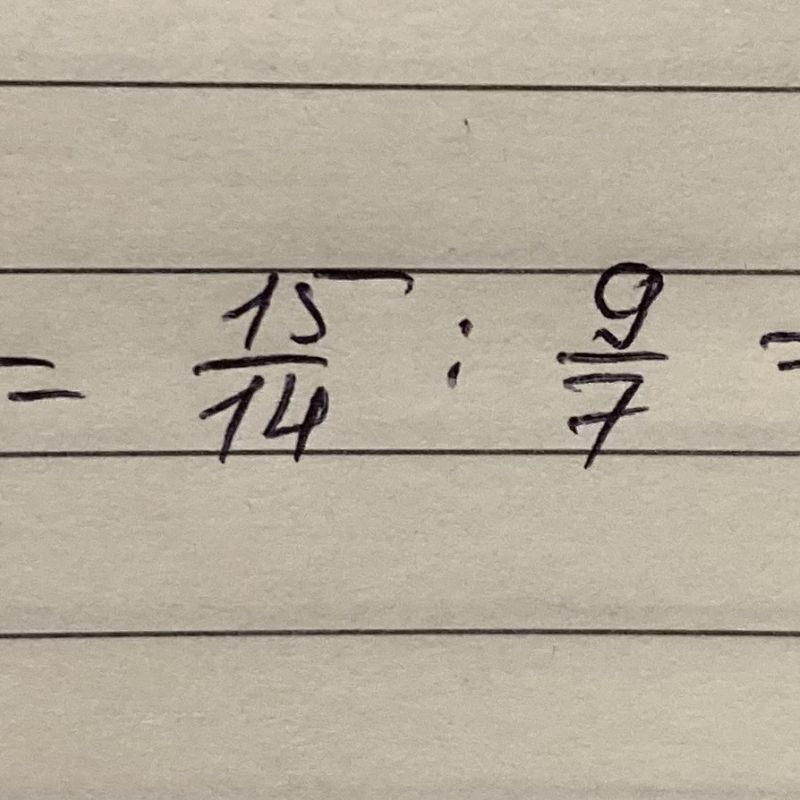 = 15/14 : 9/7 =